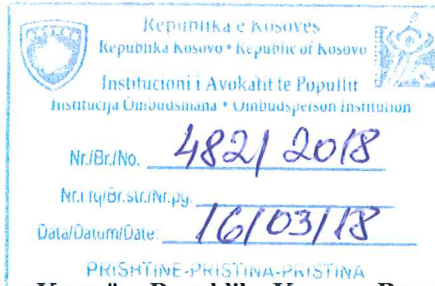 Republika e Kosovës
Republika Kosovo • Republic of Kosovo
Institucioni i Avokatit të Popullit
Institucija Ombudsmana • Ombudsperson Institution
Nr./Br./No. 482/2018
Nr.i fq/Br.str./Nr.pg.
Data/Datum/Date: 16/03/18
PRISHTINË-PRIŠTINA-PRISTINA